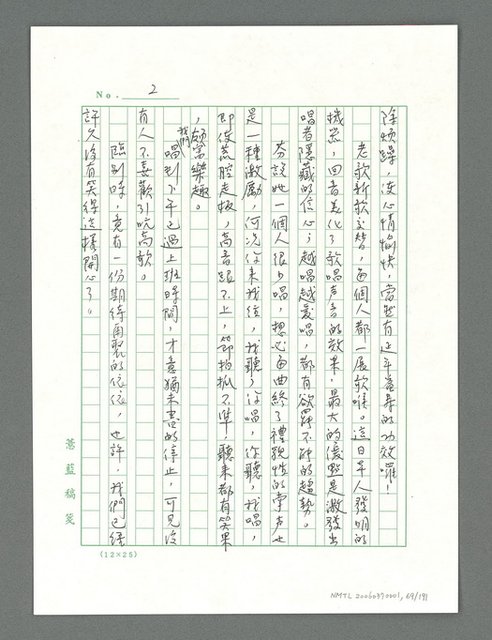 No. 2
除煩躁，使心情愉快，當然有延年益壽的功效囉！
老歌新歌交替，每個人都一展歌喉。這日本人發明的
機器，回音美化了歌唱声音的效果，最大的優點是激發出
唱者隱藏的信心；越唱越愛唱，都有欲罷不能的趨勢。
芬說她一個人很少唱，想必每曲終了禮貌性的掌声也
是一種激勵，何況你來我往，我聽，你唱，你聽，我唱，
即使荒腔走板，高音跟不上，節拍抓不準，聽來都有笑果
，頗富樂趣。
我們
唱到下午已過上班時間，才意猶未盡的停止，可見沒
有人不喜歡引吭高歌。
臨別時，竟有一份期待再聚的依依，也許，我們已經
許久沒有笑得這樣開心了。
薈藍稿箋
(12×25)
NMTL 20060370001, 69/191